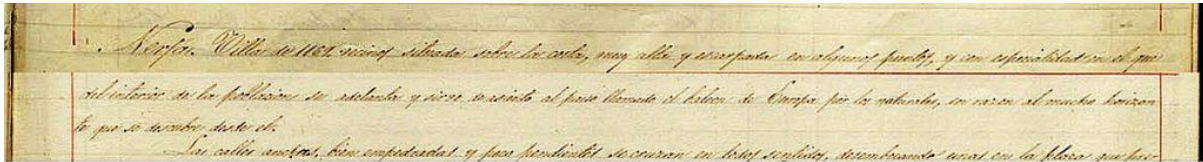 Nerja. Villa de 1152 vecinos situada sobre la costa, muy alta y escarpada en algunos puntos, y con especialidad en el que
del interior de la poblacion se adelanta y sirve de asiento al paseo llamado el balcon de Europa por los naturales, en razon al mucho horizon
te que se descubre desde el.
Las calles anchas, bien empedradas y poco pendientes se cruzan en todos sentidos, desembocando unas en la plaza que